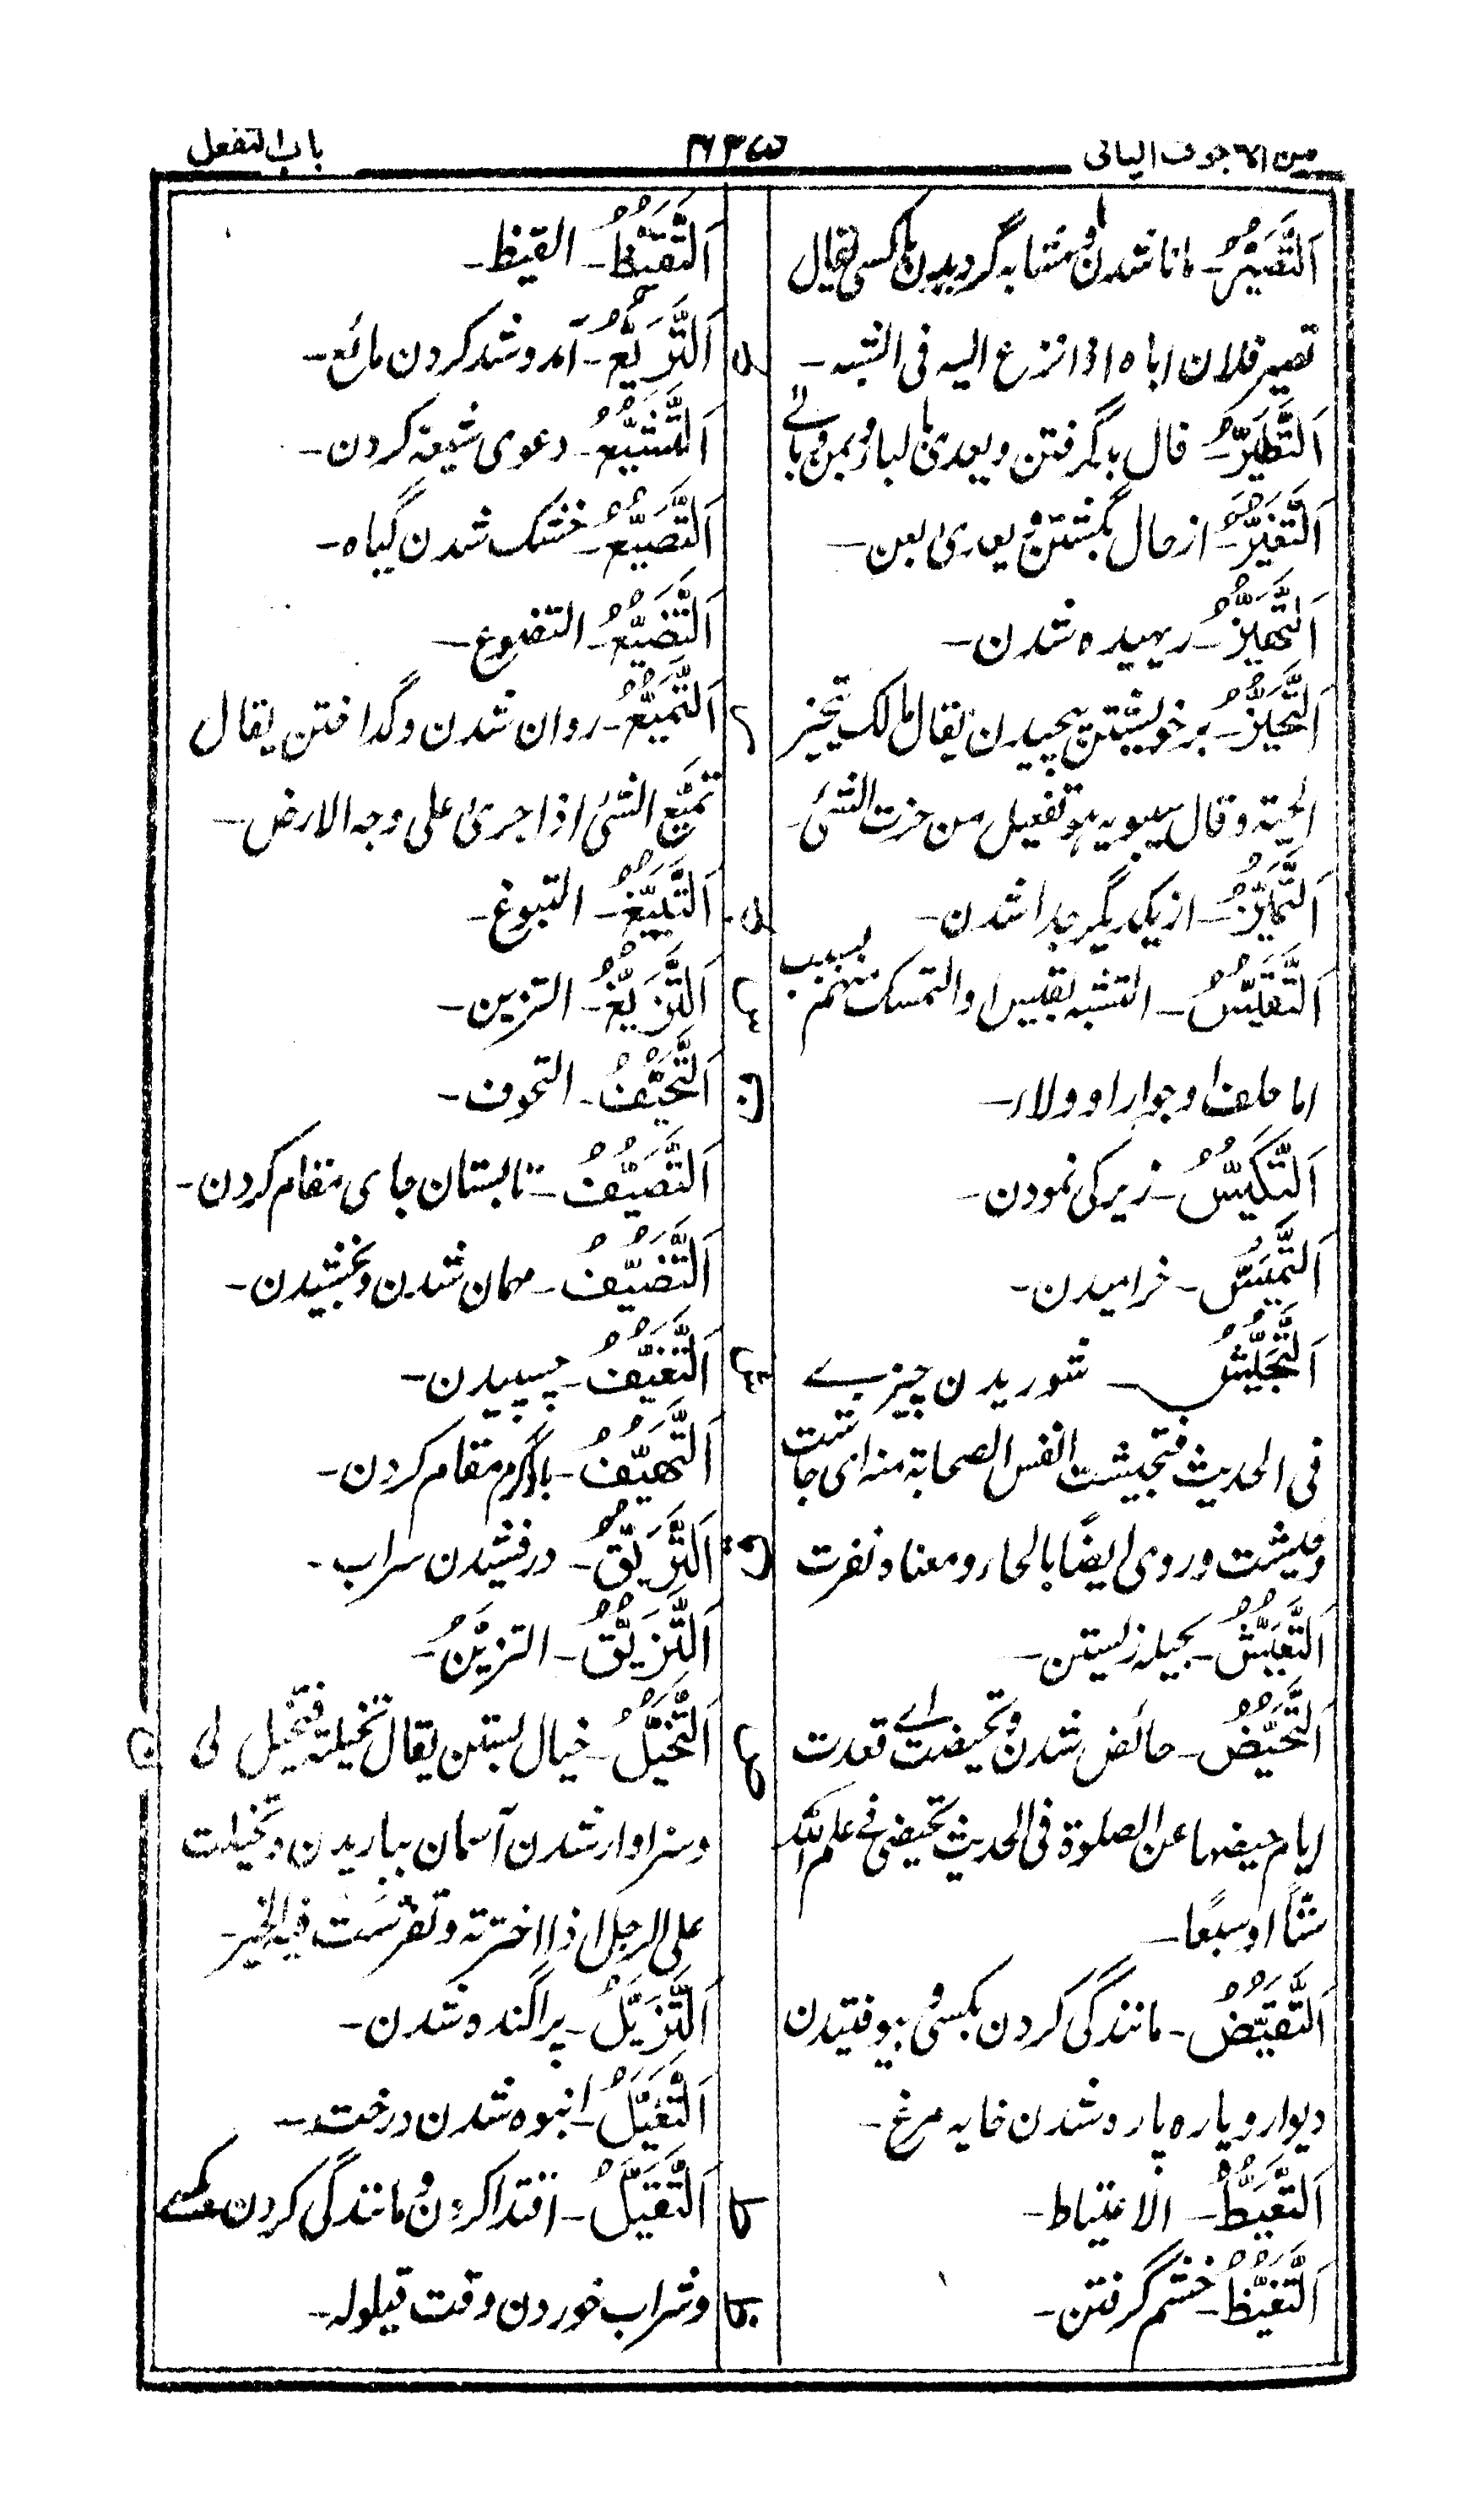 من الاجوف الیائی
۶۳۵
باب التفعل
اَلتَّصَیُّرُ۔ مانا شدن و مشابه گردیدن با کسی یقال
تصیر فلان اباه اذا نزع الیه فی الشبه۔
اَلتَّطَیُّرُ۔ فال بد گرفتن و یعدی بالباء و بمن
اَلتَّغَیُّرُ۔ از حال بگشتن و یعدی بعن۔
اَلتَّهَیُّرُ۔ ریهیده شدن۔
اَلتَّحَیُّزُ۔ بر خویشتن پیچیدن یقال مالک تتحیز
الحیة و قال سیبویه هو تفعیل من حزت الشیٔ۔
اَلتَّمَیُّزُ۔ از یکدیگر جدا شدن۔
اَلتَّقَیُّسُ۔ التشبه بقیس او التمسک منهم بسبب
اما حلف او جوار او ولاء۔
اَلتَّکَیُّسُ۔ زیرکی نمودن۔
اَلتَّمَیُّسُ۔ خرامیدن۔
اَلتَّجَیُّشُ۔ شوریدن چیزے
فی الحدیث فتجیشت انفس الصحابة منه ای جاشت
و روی ایضًا بالحاء و معناه نفرت
اَلتَّعَیُّشُ۔ بحیله زیستن۔
اَلتَّحَیُّضُ۔ حائض شدن و تحیضت اے قعدت
ایام حیضها عن الصلوة فی الحدیث تحیضی فے علم الله
ستًا او سبعًا۔
اَلتَّقَیُّضُ۔ مانندگی کردن بکسی و بیوفتیدن
دیوار و پاره پاره شدن خایه مرغ۔
اَلتَّعَیُّطُ۔ الاعتیاط۔
اَلتَّغَیُّظُ۔ خشم گرفتن۔
اَلتَّقَیُّظُ۔ القیظ۔
اَلتَّرَیُّعُ۔ آمد و شد کردن مائع۔
اَلتَّشَیُّعُ۔ دعوی شیعه کردن۔
اَلتَّصَیُّعُ۔ خشک شدن گیاه۔
اَلتَّضَیُّعُ۔ التضوع۔
اَلتَّمَیُّعُ۔ روان شدن و گداختن یقال
تمیّع الشیٔ اذا جریٰ علی وجه الارض۔
اَلتَّبَیُّغُ۔ التبوغ۔
اَلتَّزَیُّغُ۔ التزین۔
اَلتَّحَیُّفُ۔ التحوف۔
اَلتَّصَیُّفُ۔ تابستان جای مقام کردن۔
اَلتَّضَیُّفُ۔ مهمان شدن و بخشیدن۔
اَلتَّغَیُّفُ۔ چسپیدن۔
اَلتَّهَیُّفُ۔ باد گرم مقام کردن۔
اَلتَّرَیُّقُ۔ درفشیدن سراب۔
اَلتَّزَیُّقُ۔ التزیُّنُ۔
اَلتَّخَیُّلُ۔ خیال بستن یقال تخیلته فتخیل لی
و سزاوار شدن آسمان بباریدن و تخیلت
علی الرجل اذا اخترته و تفرست فیه الخیر۔
اَلتَّزَیُّلُ۔ پراگنده شدن۔
اَلتَّغَیُّلُ۔ انبوه شدن درخت۔
اَلتَّقَیُّلُ۔ اقتدا کردن و مانندگی کردن بکسے
و شراب خوردن وقت قیلوله۔